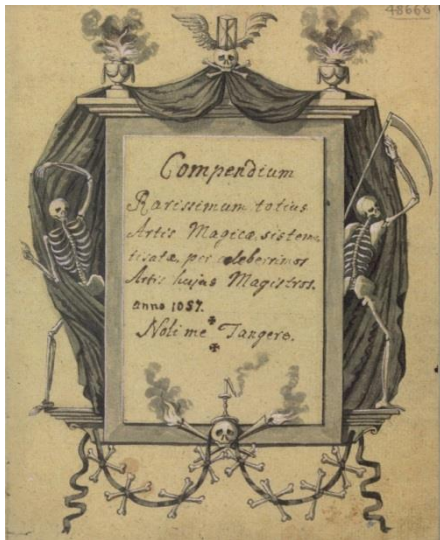 48666
Compendium
Rarissimum totius
Artis Magicæ, sistema
tisatæ per celeberrimos
Artis hujus Magistros.
anno 1057.
Noli me Tangere.